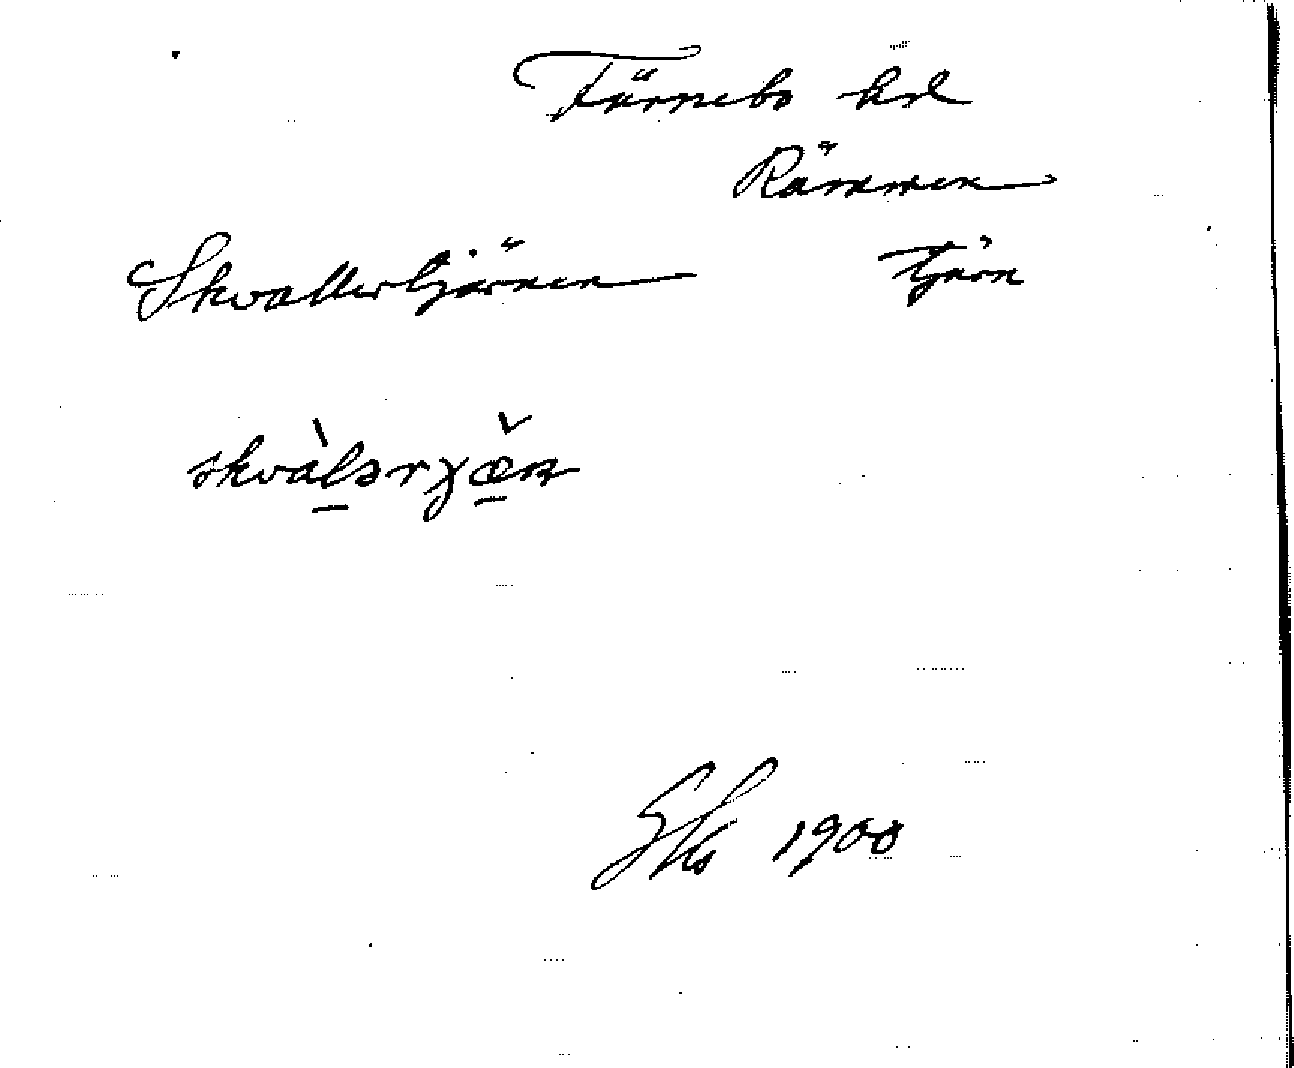 Färnebo hd
Rämmen
Skvallertjärnen tjärn
skvàlərχæ̌n
1900